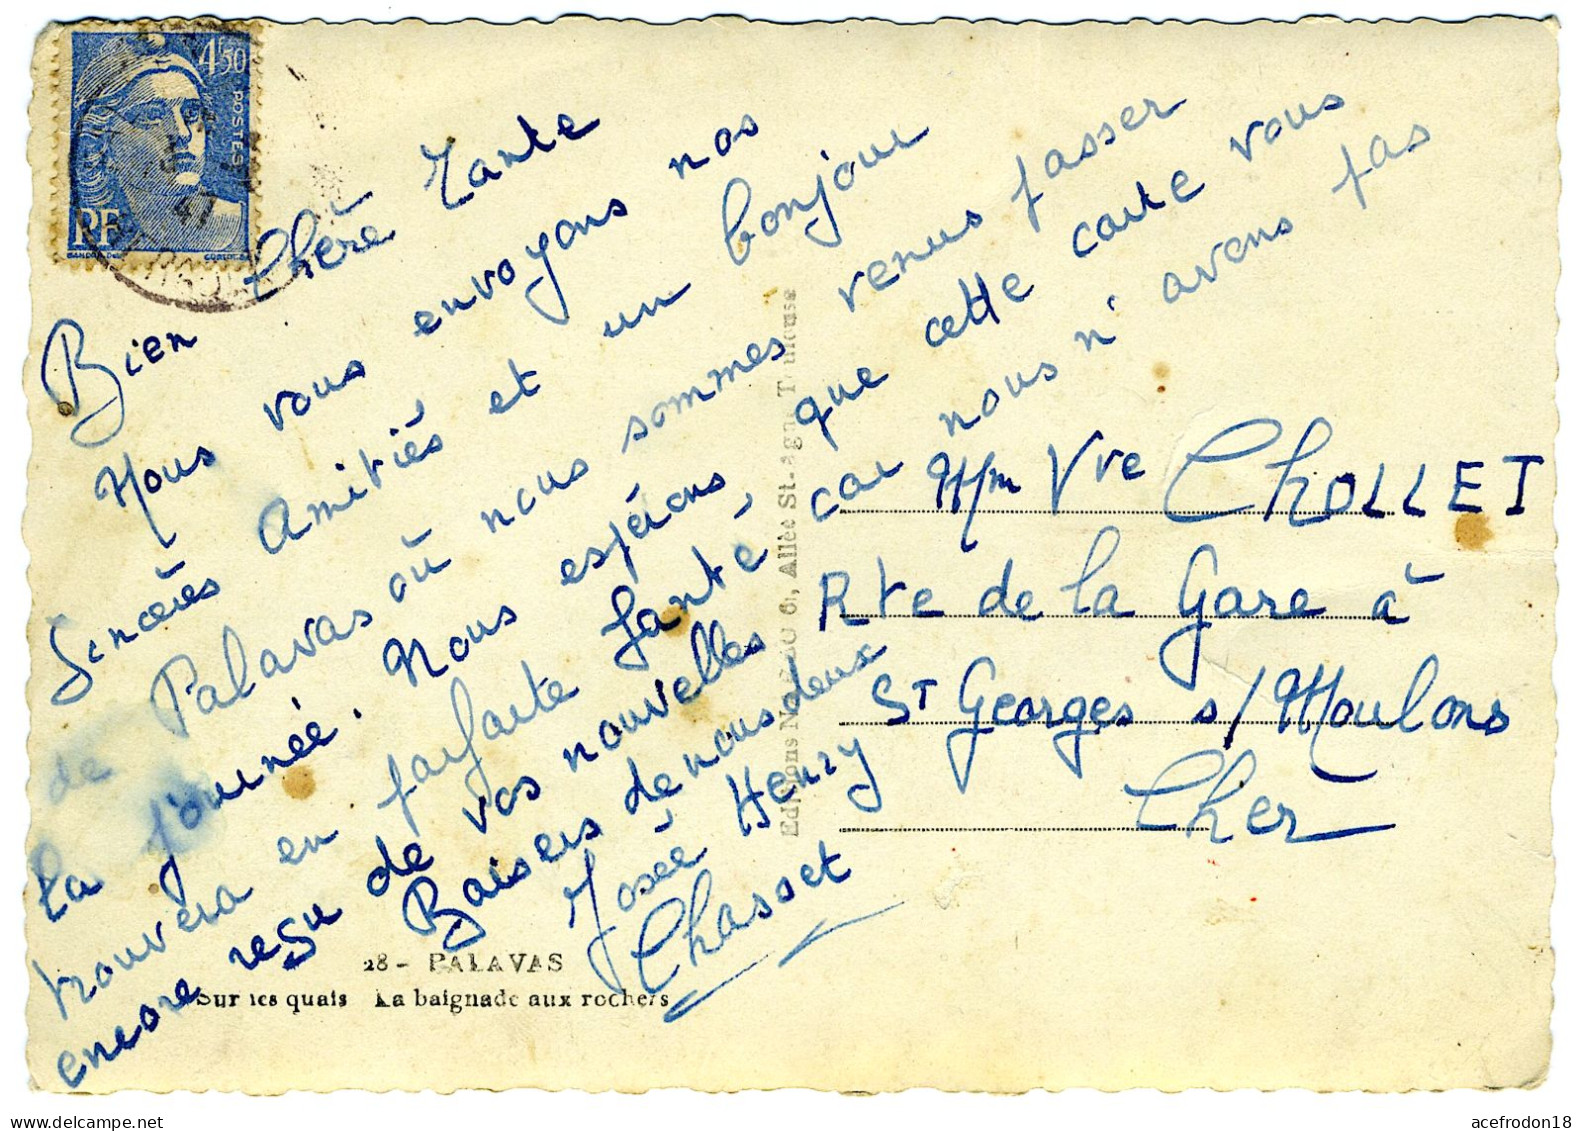 4F50
POSTES
RF
47
Bien Chère Tante
Nous vous envoyons nos
Sincères Amitiés et un bonjour
de Palavas où nous sommes venus passer
la journée. Nous espérons que cette carte vous
trouvera en parfaite santé, car nous n'avons pas
encore reçu de vos nouvelles
Baisers de nous deux
Josée Henry
Chasset
Mm Vve CHOLLET
Rte de la Gare à
St Georges s/Moulons
Cher
Allée St-
28 - PALAVAS
Sur les quais La baignade aux rochers
acefrodon18